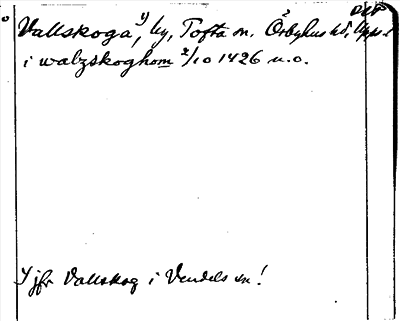 Vallskoga 1), by, Tofta sn. Örbyhus hd, Upps. l
i walzskoghom 2/10 1426 u.o.
1) jfr Vallskog i Vendels sn!